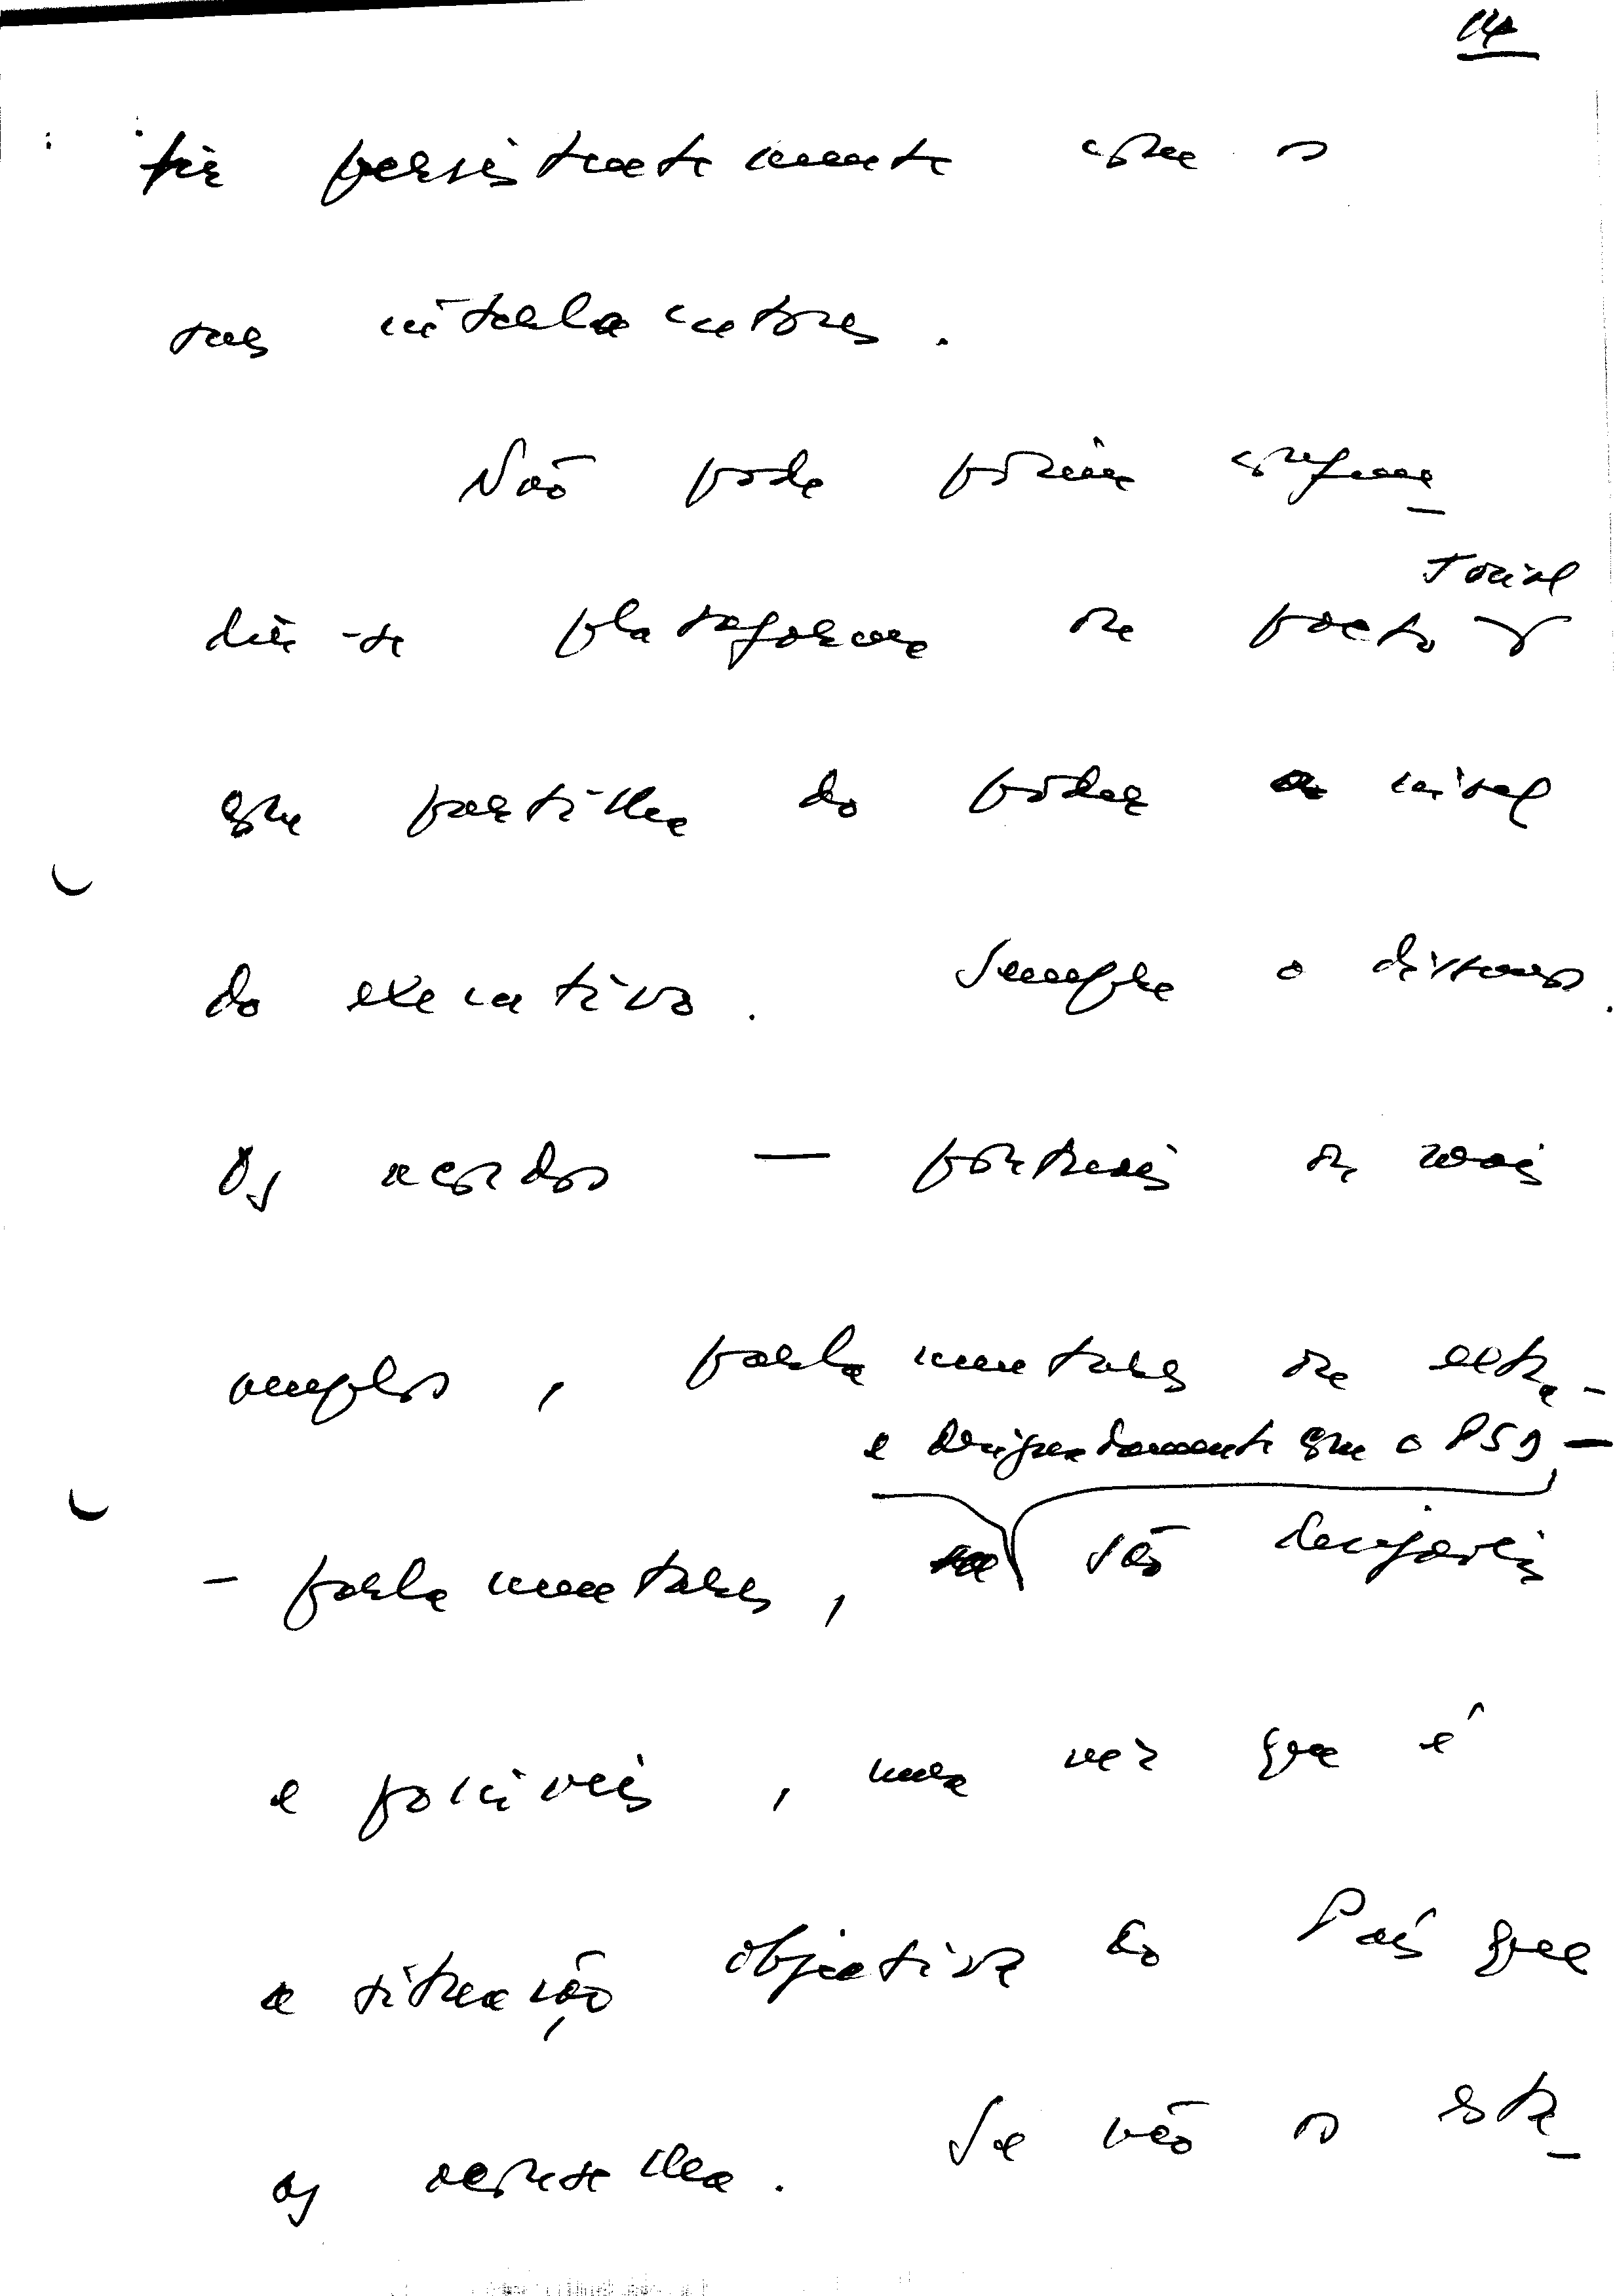 14
tir persistentemente com os
seus interlocutores.
Não pode porém confun-
dir-se plataforma ou pacto social
com partilha do poder a nível
do executivo. Sempre o dissemos.
Os acordos — pontuais ou mais
amplos, parlamentares ou extra-
e designadamente com o PSD —
- parlamentares, são desejáveis
e possíveis, uma vez que é
a situação objectiva do País que
os aconselha. Se não o esta-